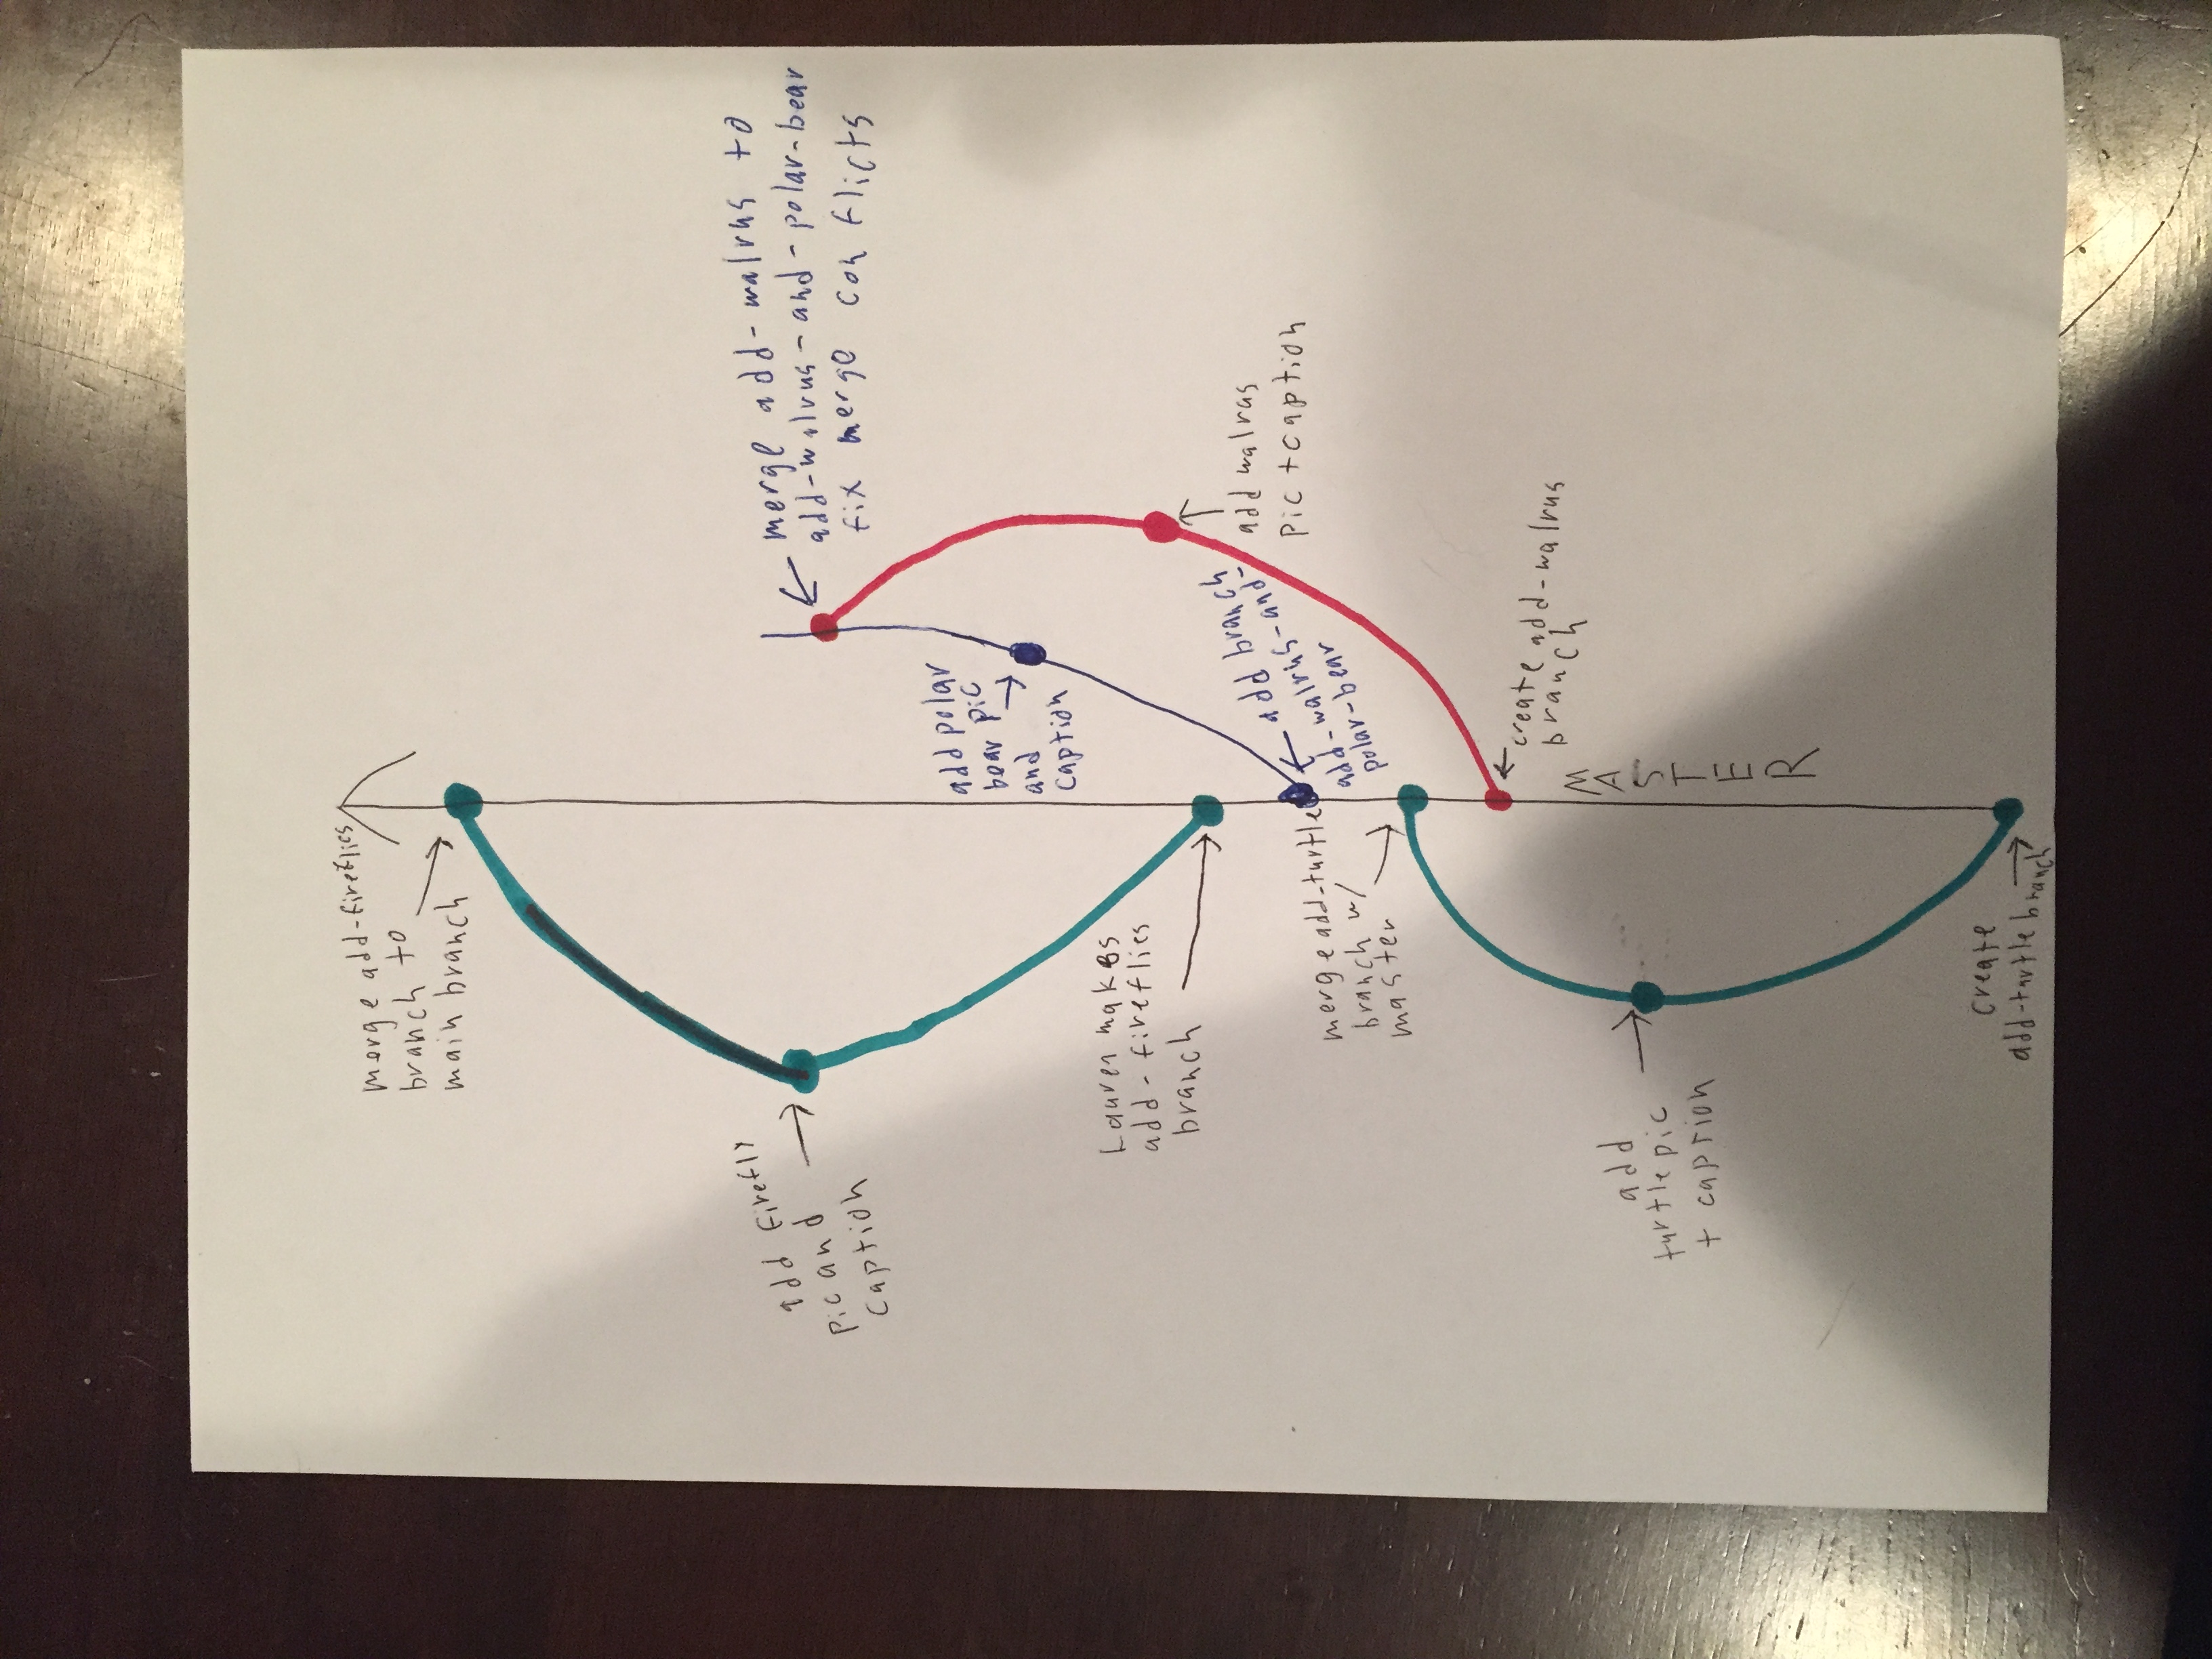 merge add-fireflies
branch to
main branch
add firefly
pic and
caption
merge add-walrus to
add-walrus-and-polar-bear
fix merge conflicts
add polar
bear pic
and
caption
Lauren makes
add-fireflies
branch
add walrus
pic + caption
add branch
add-walrus-and-
polar-bear
merge add-turtle
branch w/
master
create add-walrus
branch
MASTER
add
turtle pic
+ caption
create
add-turtle branch